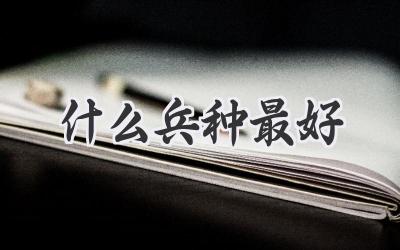 什么兵种最好